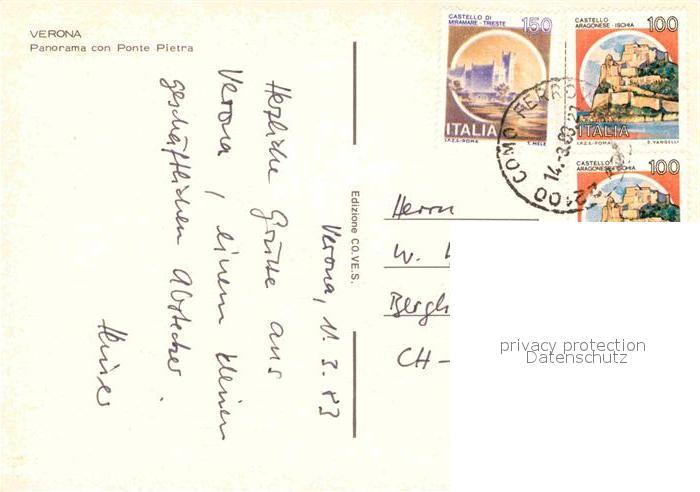 VERONA
Panorama con Ponte Pietra
Verona, 11.3.83
Herzliche Grüsse aus
Verona, einem kleinen
geschäftlichen Abstecher.
Edizione CO.VE.S.
CASTELLO DI
MIRAMARE - TRIESTE 150
ITALIA
I.P.Z.S. - ROMA T. MELE
CASTELLO
ARAGONESE - ISCHIA 100
ITALIA
I.P.Z.S. - ROMA E. VANGELLI
CASTELLO
ARAGONESE - ISCHIA 100
22100 COMO FERRO
14.3.83
Herrn
W.
Bergh
CH-
privacy protection
Datenschutz